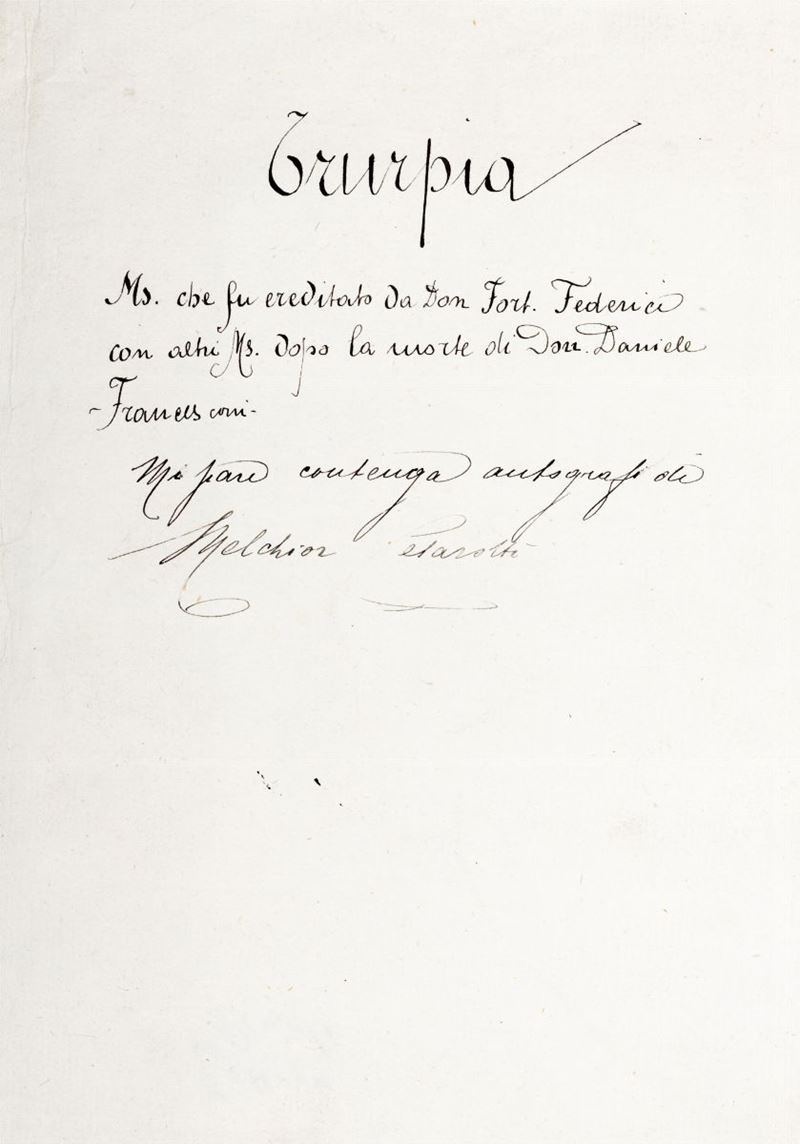 Trurpia
Ms. che fu ereditato da Don Fort. Federici
con altri Ms. dopo la morte di Don. Daniele
-Francesconi-
Mi pare contenga autografi di
Melchior Cesarotti